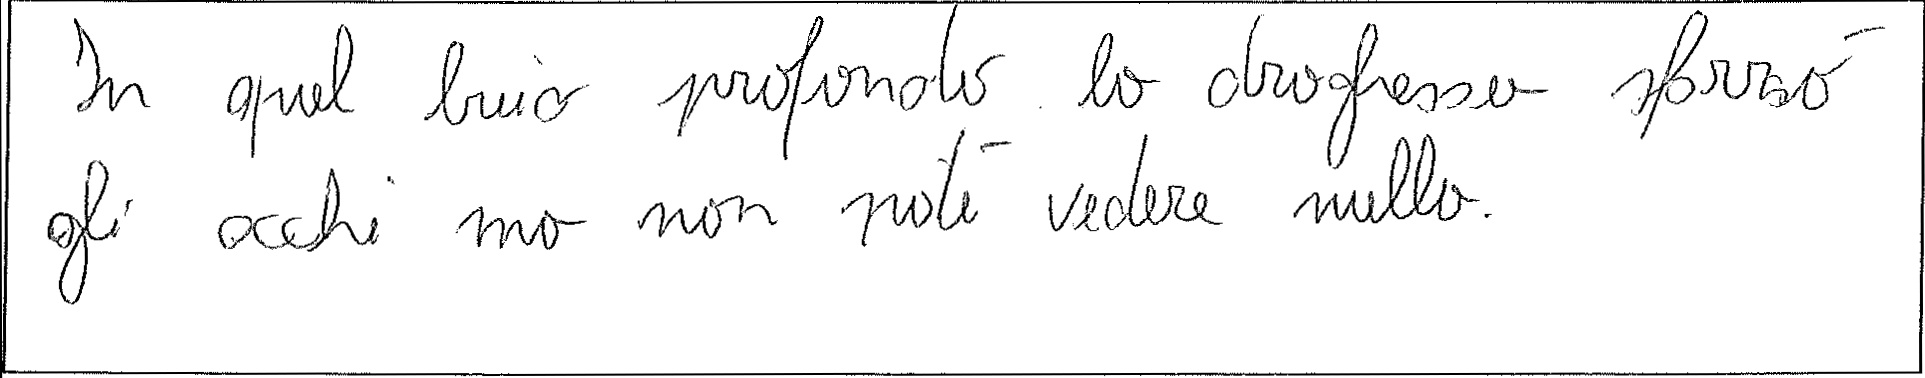 In quel buio profondo la droghessa sforzò
gli occhi ma non poté vedere nulla.